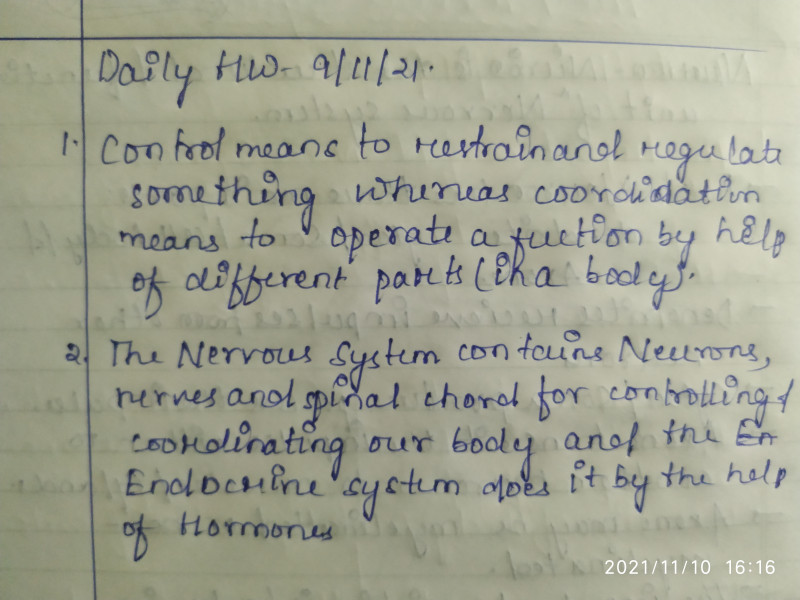 Daily HW- 9/11/21.
1. Control means to restrain and regulate
something whereas coordidation
means to operate a fuction by help
of different parts (in a body).
2. The Nervous System contains Neurons,
nerves and spinal chord for controlling &
coordinating our body and the En
Endocrine system does it by the help
of Hormones
2021/11/10 16:16